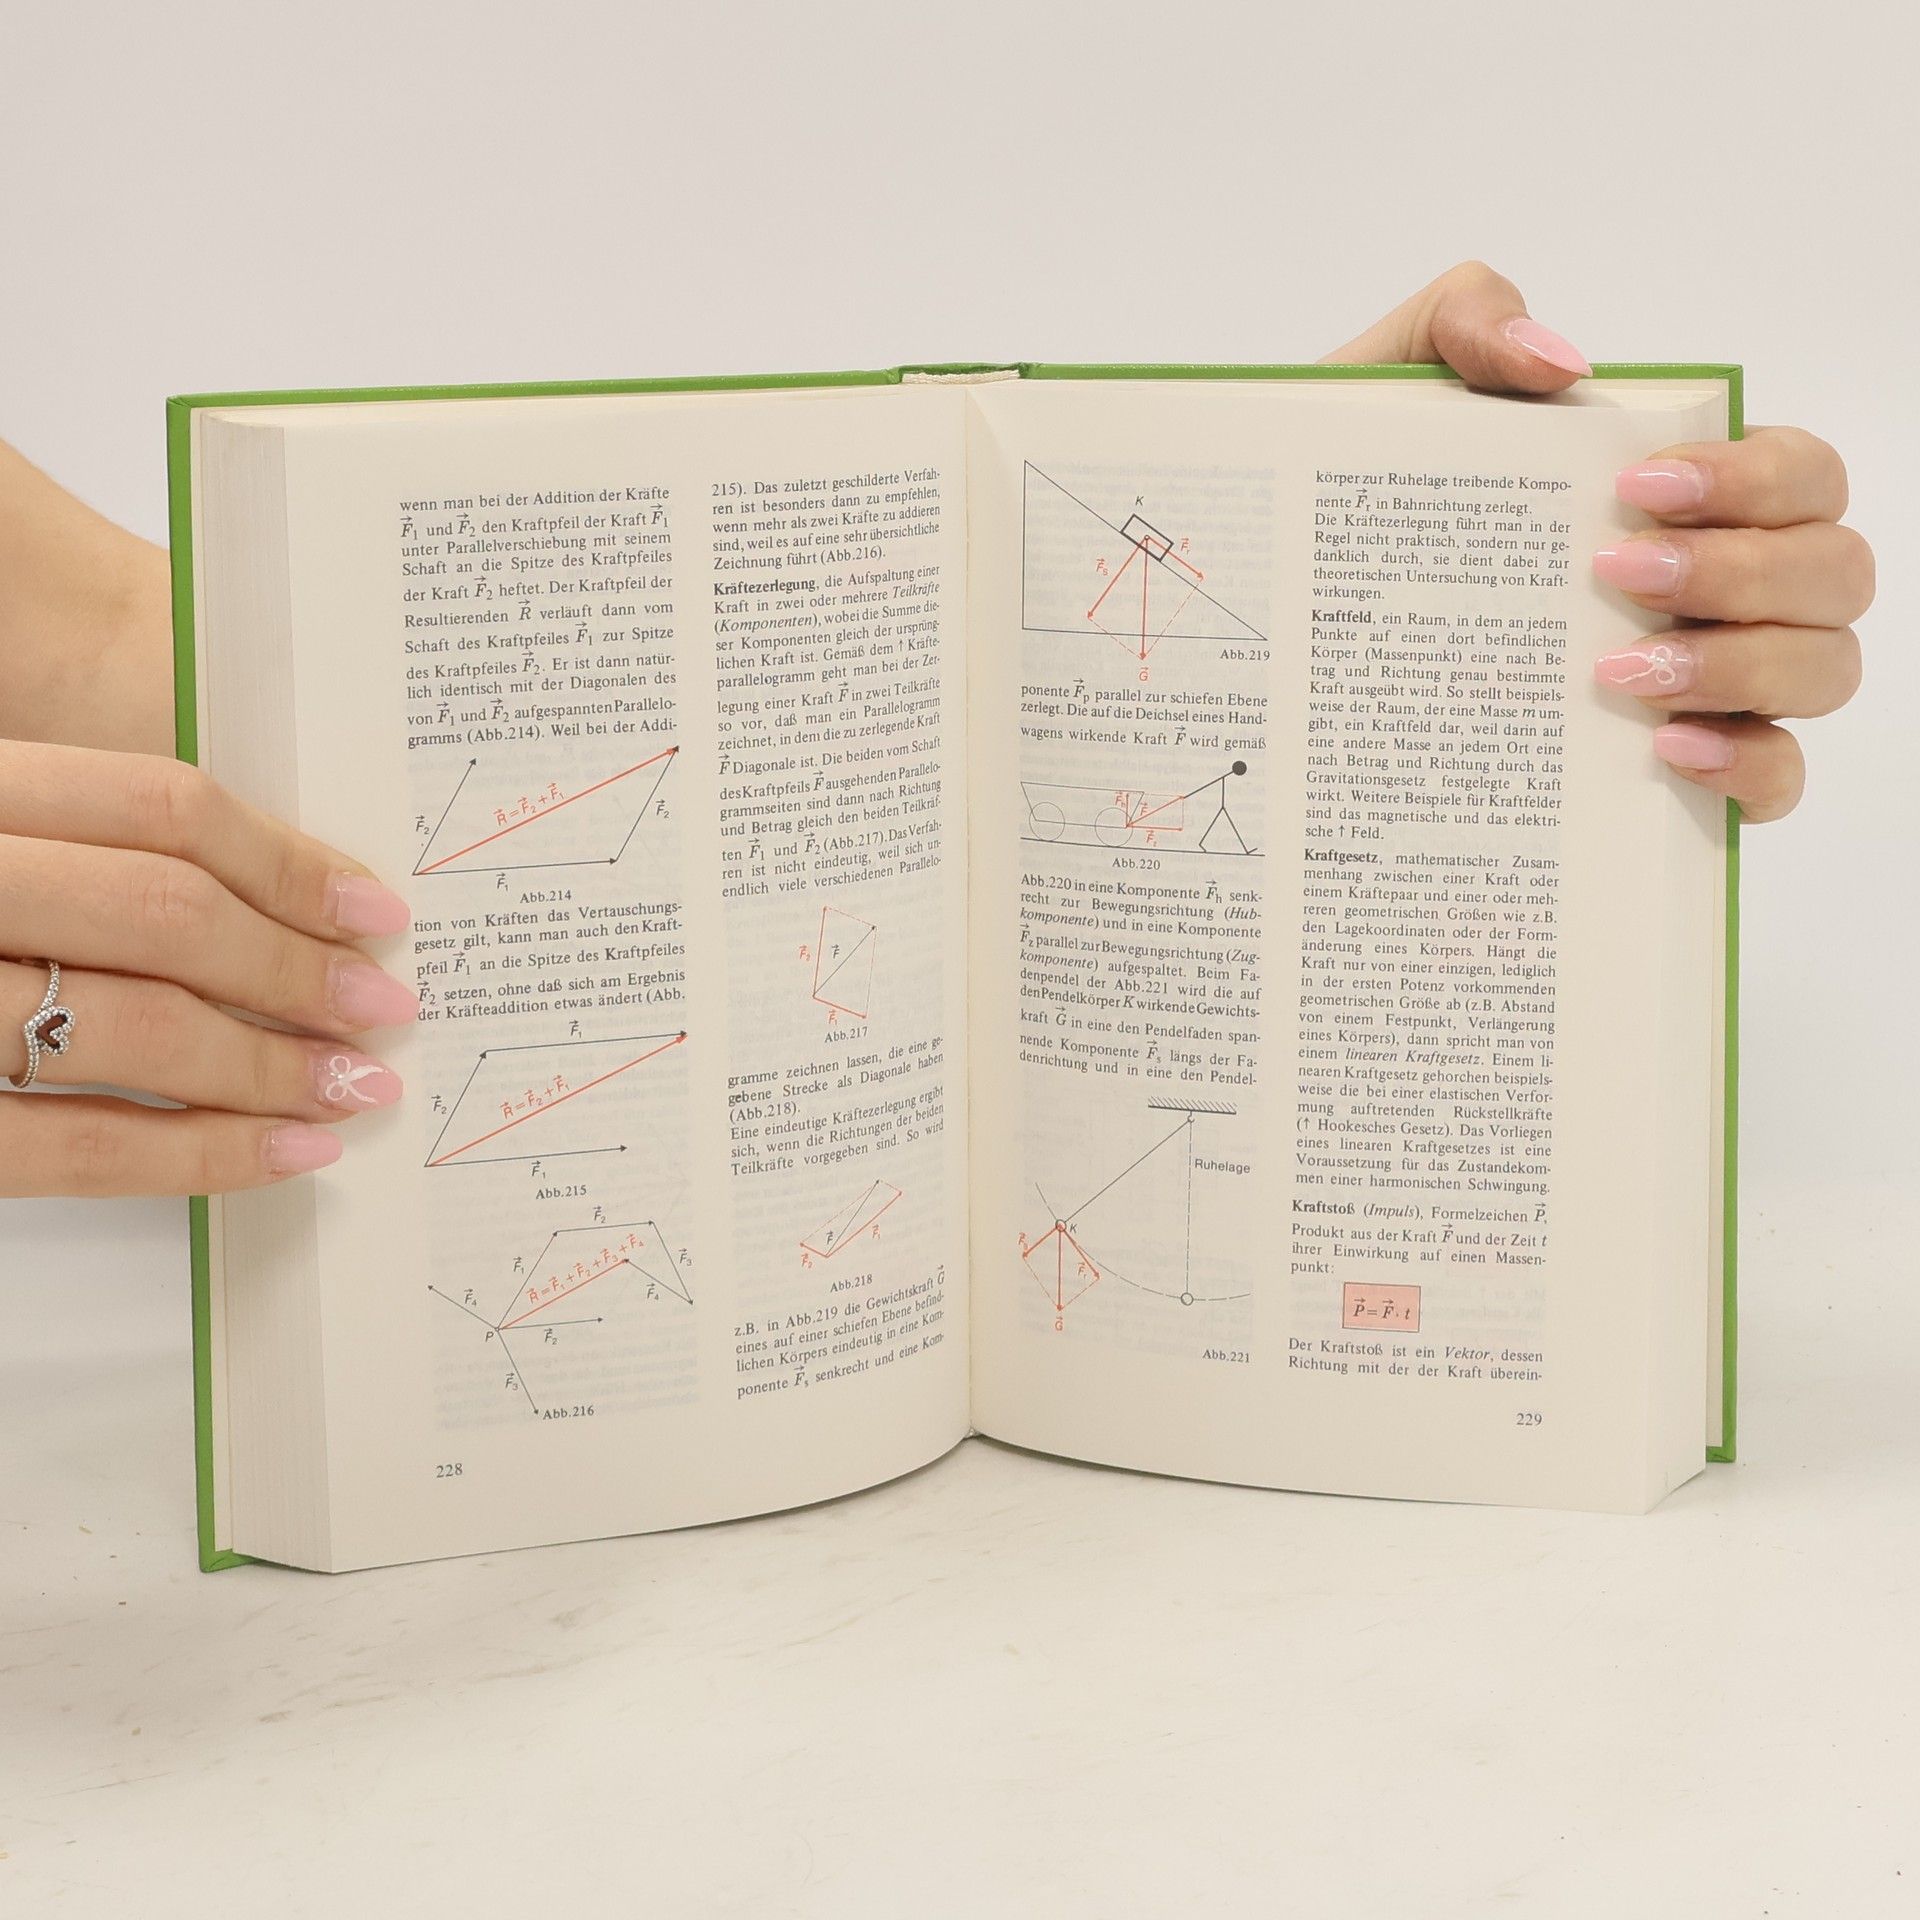 wenn man bei der Addition der Kräfte
F⃗₁ und F⃗₂ den Kraftpfeil der Kraft F⃗₁
unter Parallelverschiebung mit seinem
Schaft an die Spitze des Kraftpfeiles
der Kraft F⃗₂ heftet. Der Kraftpfeil der
Resultierenden R⃗ verläuft dann vom
Schaft des Kraftpfeiles F⃗₁ zur Spitze
des Kraftpfeiles F⃗₂. Er ist dann natür-
lich identisch mit der Diagonalen des
von F⃗₁ und F⃗₂ aufgespannten Parallelo-
gramms (Abb.214). Weil bei der Addi-
F⃗₂
R⃗=F⃗₂+F⃗₁
F⃗₂
F⃗₁
Abb.214
tion von Kräften das Vertauschungs-
gesetz gilt, kann man auch den Kraft-
pfeil F⃗₁ an die Spitze des Kraftpfeiles
F⃗₂ setzen, ohne daß sich am Ergebnis
der Kräfteaddition etwas ändert (Abb.
F⃗₁
F⃗₂
R⃗=F⃗₂+F⃗₁
F⃗₁
Abb.215
F⃗₂
F⃗₁
R⃗=F⃗₁+F⃗₂+F⃗₃+F⃗₄
F⃗₃
F⃗₄
F⃗₄
P
F⃗₂
F⃗₃
Abb.216
228
215). Das zuletzt geschilderte Verfah-
ren ist besonders dann zu empfehlen,
wenn mehr als zwei Kräfte zu addieren
sind, weil es auf eine sehr übersichtliche
Zeichnung führt (Abb.216).
Kräftezerlegung, die Aufspaltung einer
Kraft in zwei oder mehrere Teilkräfte
(Komponenten), wobei die Summe die-
ser Komponenten gleich der ursprüng-
lichen Kraft ist. Gemäß dem ↑ Kräfte-
parallelogramm geht man bei der Zer-
legung einer Kraft F⃗ in zwei Teilkräfte
so vor, daß man ein Parallelogramm
zeichnet, in dem die zu zerlegende Kraft
F⃗ Diagonale ist. Die beiden vom Schaft
des Kraftpfeils F⃗ ausgehenden Parallelo-
grammseiten sind dann nach Richtung
und Betrag gleich den beiden Teilkräf-
ten F⃗₁ und F⃗₂ (Abb.217). Das Verfah-
ren ist nicht eindeutig, weil sich un-
endlich viele verschiedenen Parallelo-
F⃗₂
F⃗
F⃗₁
Abb.217
gramme zeichnen lassen, die eine ge-
gebene Strecke als Diagonale haben
(Abb.218).
Eine eindeutige Kräftezerlegung ergibt
sich, wenn die Richtungen der beiden
Teilkräfte vorgegeben sind. So wird
F⃗
F⃗₁
F⃗₂
Abb.218
z.B. in Abb.219 die Gewichtskraft G⃗
eines auf einer schiefen Ebene befind-
lichen Körpers eindeutig in eine Kom-
ponente F⃗ₛ senkrecht und eine Kom-
K
F⃗ₛ
G⃗
Abb.219
ponente F⃗ₚ parallel zur schiefen Ebene
zerlegt. Die auf die Deichsel eines Hand-
wagens wirkende Kraft F⃗ wird gemäß
F⃗ₕ
F⃗
F⃗z
Abb.220
Abb.220 in eine Komponente F⃗ₕ senk-
recht zur Bewegungsrichtung (Hub-
komponente) und in eine Komponente
F⃗z parallel zur Bewegungsrichtung (Zug-
komponente) aufgespaltet. Beim Fa-
denpendel der Abb.221 wird die auf
den Pendelkörper K wirkende Gewichts-
kraft G⃗ in eine den Pendelfaden span-
nende Komponente F⃗ₛ längs der Fa-
denrichtung und in eine den Pendel-
Ruhelage
K
F⃗ₛ
F⃗ᵣ
G⃗
Abb.221
körper zur Ruhelage treibende Kompo-
nente F⃗ᵣ in Bahnrichtung zerlegt.
Die Kräftezerlegung führt man in der
Regel nicht praktisch, sondern nur ge-
danklich durch, sie dient dabei zur
theoretischen Untersuchung von Kraft-
wirkungen.
Kraftfeld, ein Raum, in dem an jedem
Punkte auf einen dort befindlichen
Körper (Massenpunkt) eine nach Be-
trag und Richtung genau bestimmte
Kraft ausgeübt wird. So stellt beispiels-
weise der Raum, der eine Masse m um-
gibt, ein Kraftfeld dar, weil darin auf
eine andere Masse an jedem Ort eine
nach Betrag und Richtung durch das
Gravitationsgesetz festgelegte Kraft
wirkt. Weitere Beispiele für Kraftfelder
sind das magnetische und das elektri-
sche ↑ Feld.
Kraftgesetz, mathematischer Zusam-
menhang zwischen einer Kraft oder
einem Kräftepaar und einer oder meh-
reren geometrischen Größen wie z.B.
den Lagekoordinaten oder der Form-
änderung eines Körpers. Hängt die
Kraft nur von einer einzigen, lediglich
in der ersten Potenz vorkommenden
geometrischen Größe ab (z.B. Abstand
von einem Festpunkt, Verlängerung
eines Körpers), dann spricht man von
einem linearen Kraftgesetz. Einem li-
nearen Kraftgesetz gehorchen beispiels-
weise die bei einer elastischen Verfor-
mung auftretenden Rückstellkräfte
(↑ Hookesches Gesetz). Das Vorliegen
eines linearen Kraftgesetzes ist eine
Voraussetzung für das Zustandekom-
men einer harmonischen Schwingung.
Kraftstoß (Impuls), Formelzeichen P⃗,
Produkt aus der Kraft F⃗ und der Zeit t
ihrer Einwirkung auf einen Massen-
punkt:
P⃗ = F⃗ · t
Der Kraftstoß ist ein Vektor, dessen
Richtung mit der der Kraft überein-
229